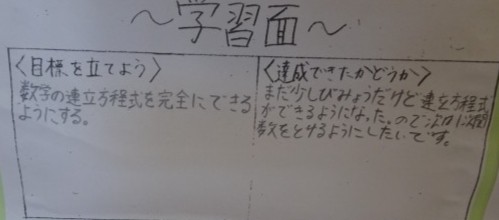 ～学習面～
〈目標を立てよう〉
数学の連立方程式を完全にできる
ようにする。
〈達成できたかどうか〉
まだ少しびみょうだけど連立方程式
ができるようになった。ので次は
数をとけるようにしたいです。